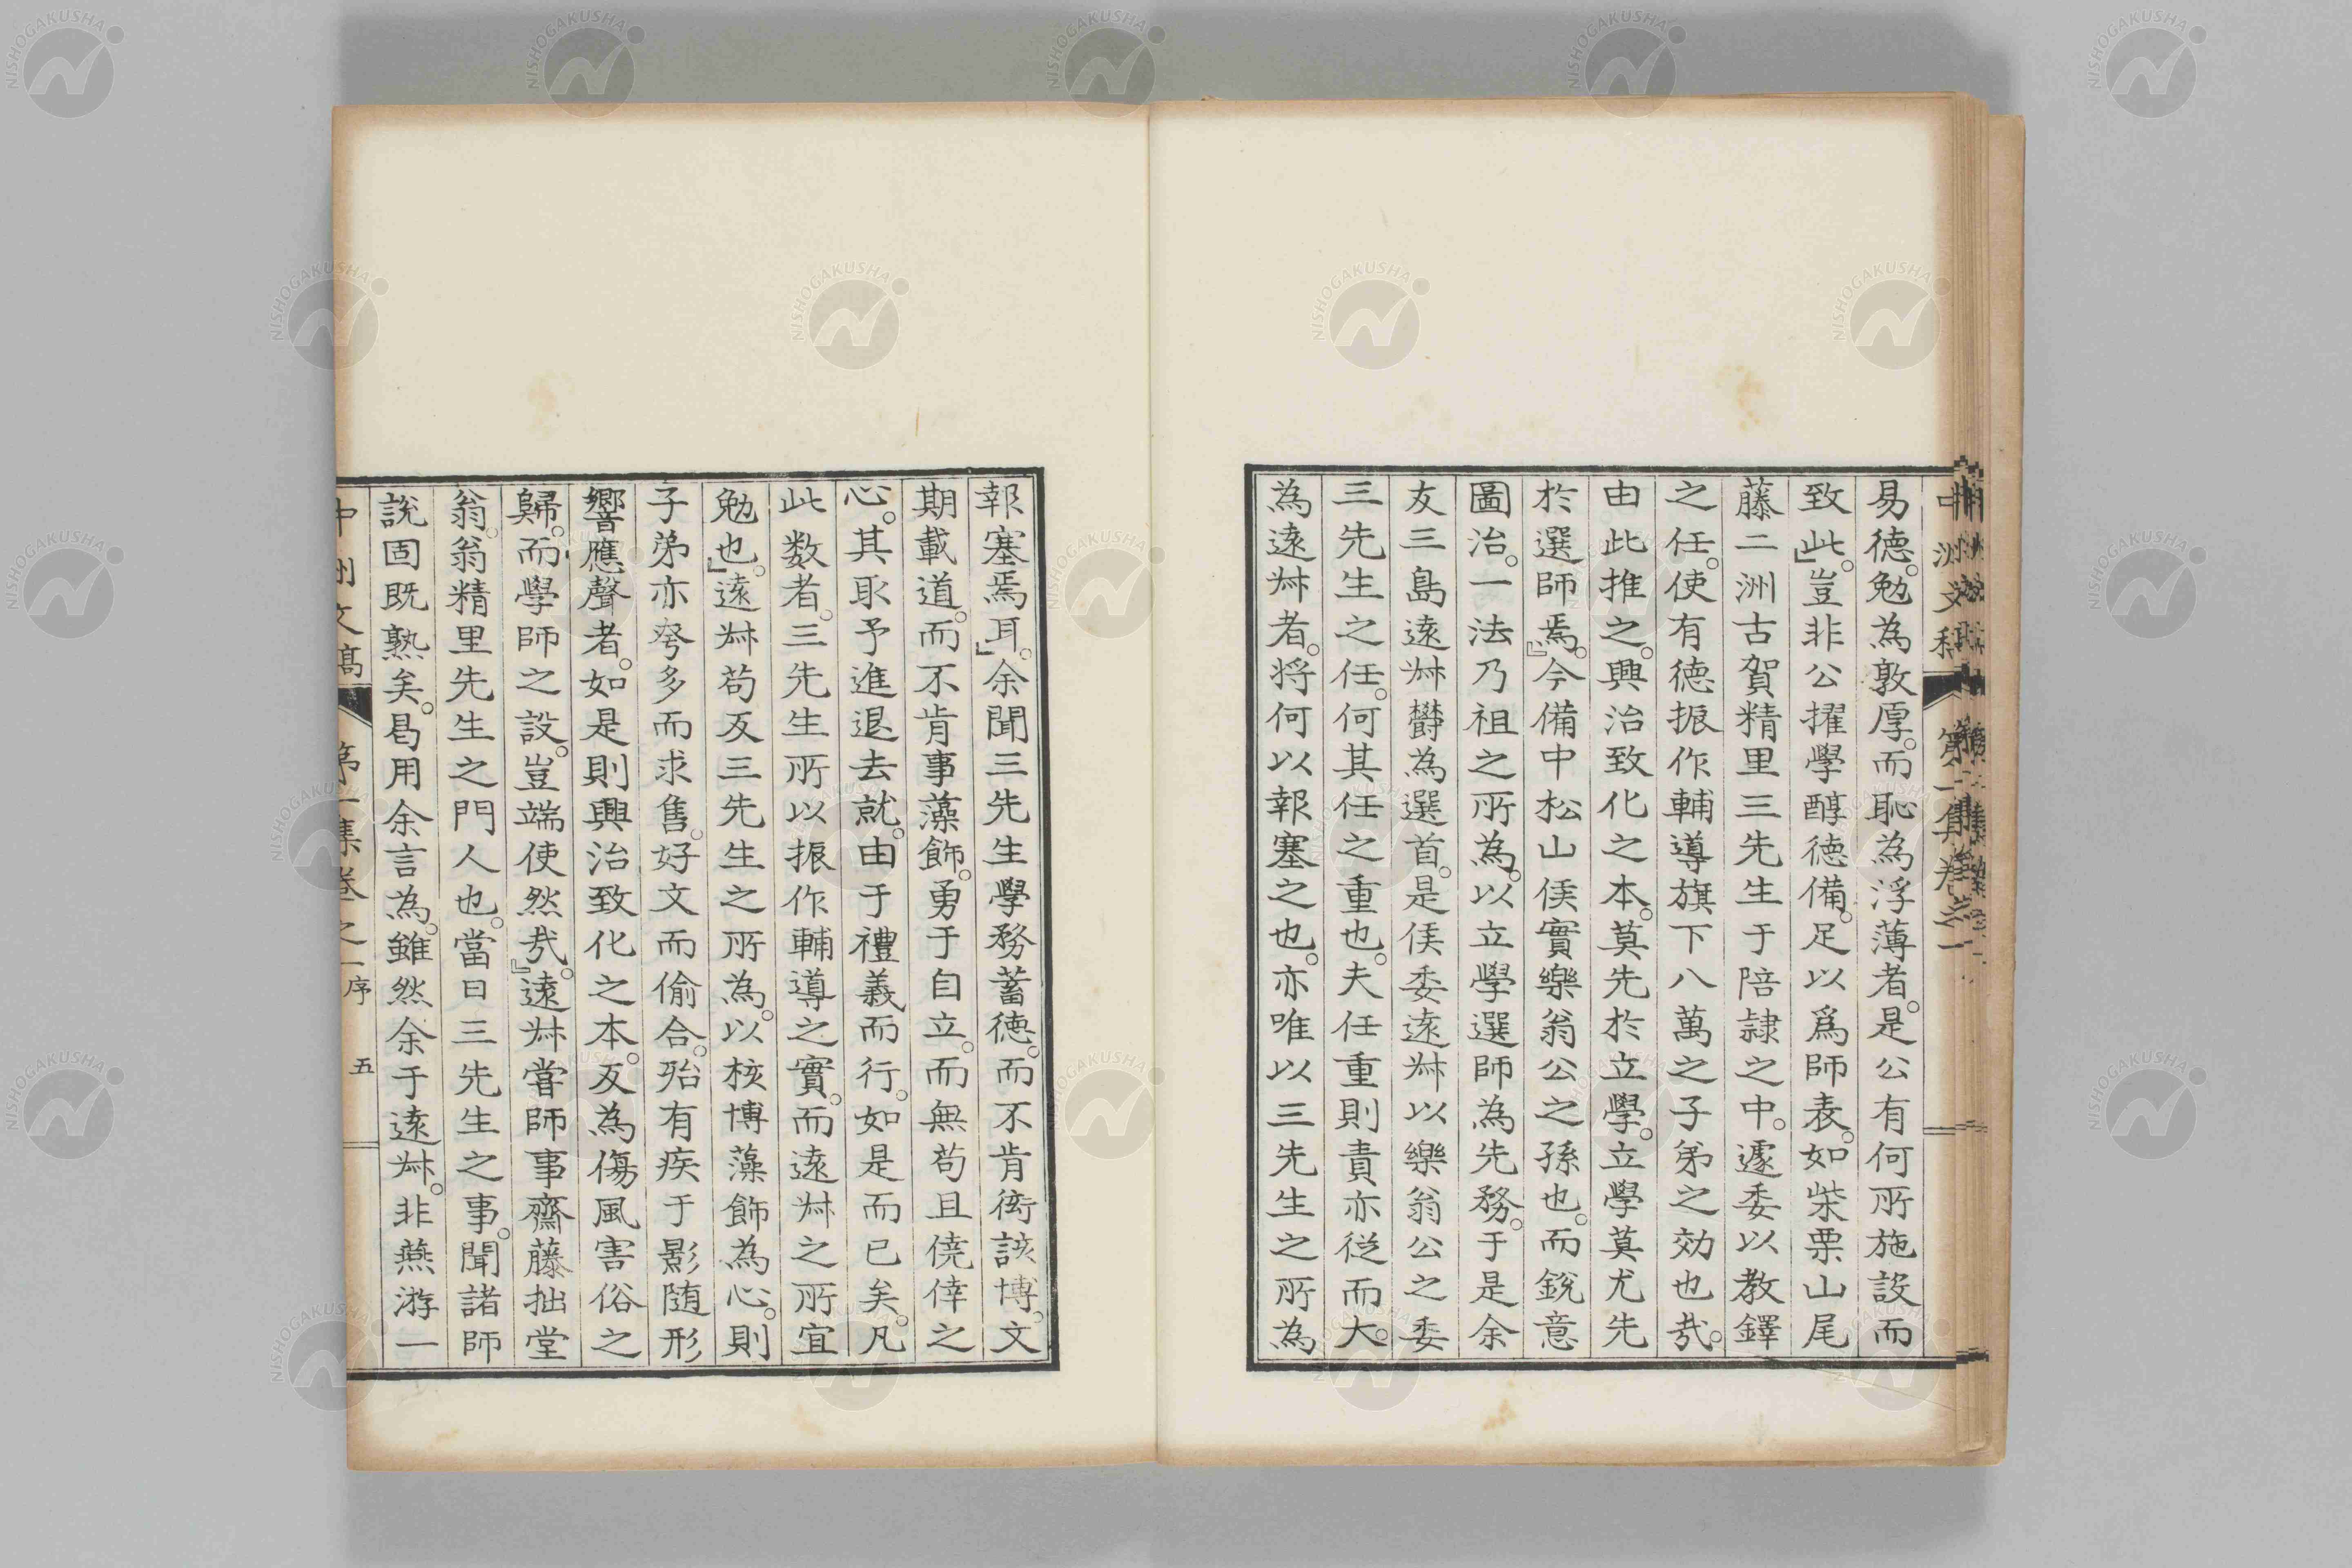 易德。勉為敦厚。而恥為浮薄者。是公有何所施設而
致此。」豈非公擢學醇德備。足以爲師表。如柴栗山尾
藤二洲古賀精里三先生于陪隷之中。遽委以教鐸
之任。使有德振作輔導旗下八萬之子弟之効也哉。
由此推之。興治致化之本。莫先於立學。立學莫尤先
於選師焉。』今備中松山侯實樂翁公之孫也。而銳意
圖治。一法乃祖之所為。以立學選師為先務。于是余
友三島遠叔欝為選首。是侯委遠叔以樂翁公之委
三先生之任。何其任之重也。夫任重則責亦從而大。
為遠叔者。將何以報塞之也。亦唯以三先生之所為
報塞焉耳。」余聞三先生學務蓄德。而不肯衒該博。文
期載道。而不肯事藻飾。勇于自立。而無苟且僥倖之
心。其取予進退去就。由于禮義而行。如是而已矣。凡
此数者。三先生所以振作輔導之實。而遠叔之所宜
勉也。」遠叔苟反三先生之所為。以核博藻飾為心。則
子弟亦夸多而求售。好文而偷合。殆有疾于影隨形
響應聲者。如是則興治致化之本。反為傷風害俗之
歸。而學師之設。豈端使然哉。』遠叔嘗師事齋藤拙堂
翁。翁精里先生之門人也。當日三先生之事。聞諸師
說固既熟矣。曷用余言為。雖然余于遠叔。非燕游一
中洲文稿 第一集卷之一 序 五